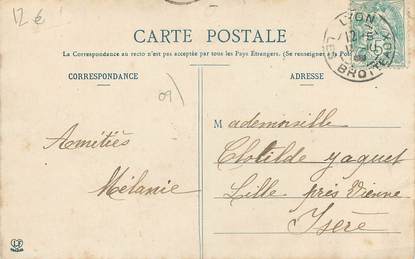 12 €
CARTE POSTALE
La Correspondance au recto n'est pas acceptée par tous les Pays Étrangers. (Se renseigner à la Poste
CORRESPONDANCE
ADRESSE
LYON
LES BROTTEAUX
09
Amitiés
Mélanie
Mademoiselle
Clotilde Jaquet
Lille près Vienne
Isère